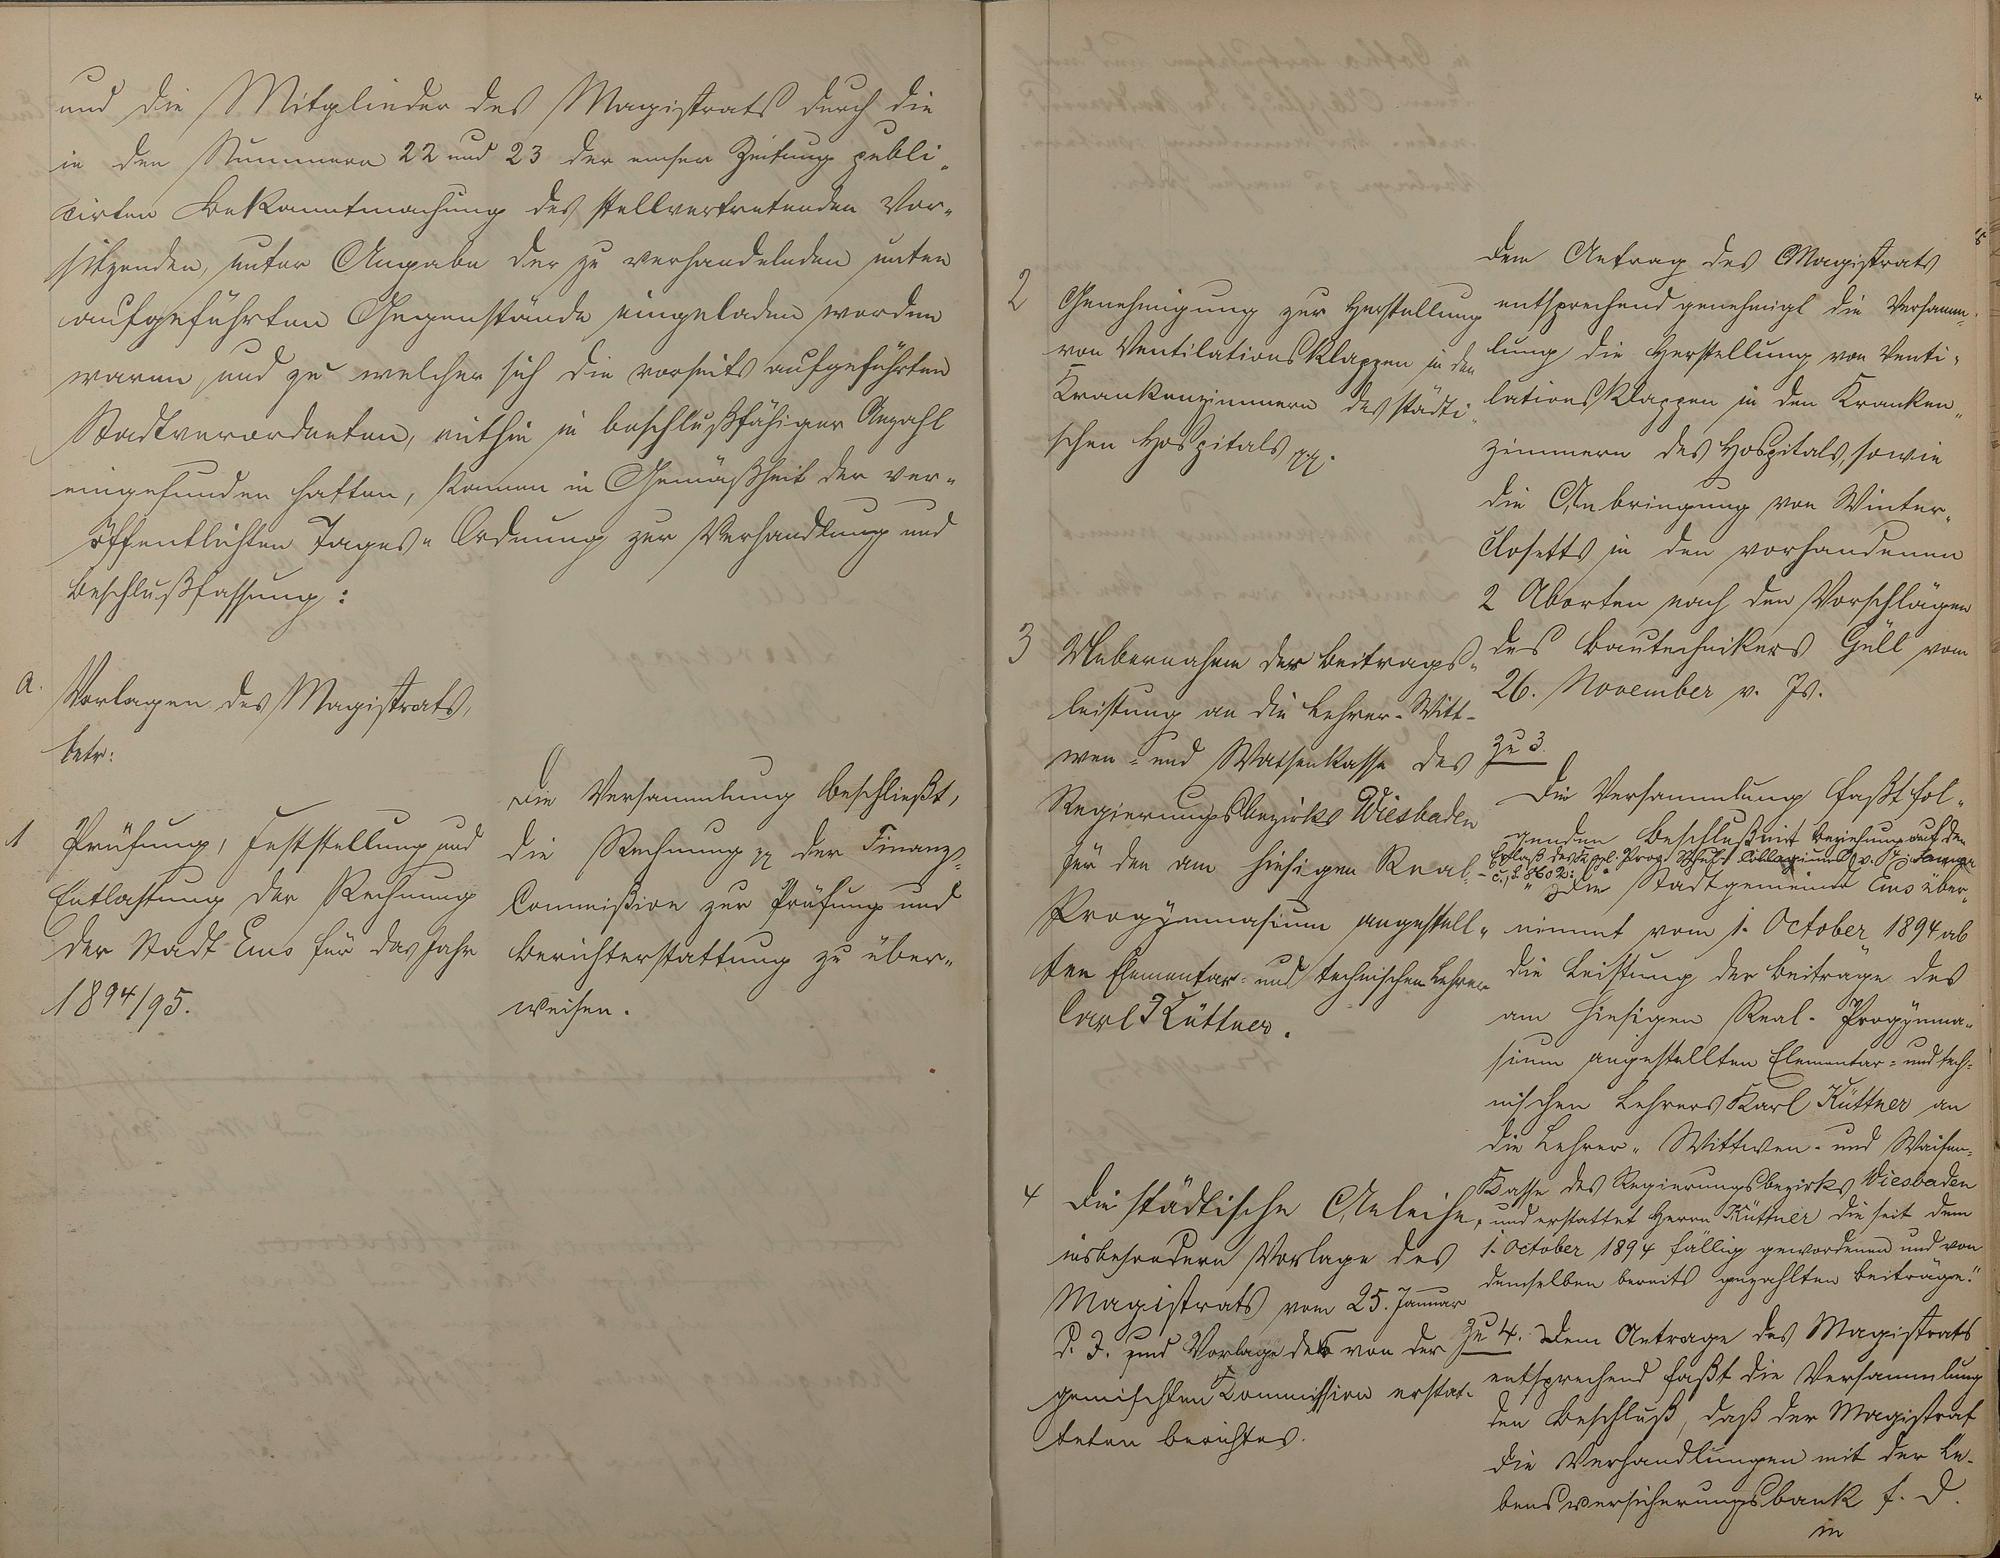 und die Mitglieder des Magistrats durch die
in den Nummern 22 und 23 der emser Zeitung publi-
cirten Bekanntmachung des stellvertretenden Vor-
sitzenden, unter Angabe der zu verhandelnden unten
aufgeführten Gegenstände eingeladen worden
waren und zu welcher sich die vorseits aufgeführten
Stadtverordneten, mithin in beschlußfähiger Anzahl
eingefunden hatten, kamen in Gemäßheit der ver-
öffentlichten Tages-Ordnung zur Verhandlung und
Beschlußfassung:
a. Vorlagen des Magistrats,
betr:
1 Prüfung, Feststellung und
Entlastung der Rechnung
der Stadt Ems für das Jahr
1894/95.
Die Versammlung beschließt,
die Rechnung pp der Finanz-
Commißion zur Prüfung und
Berichterstattung zu über-
weisen.
2 Genehmigung zur Herstellung
von Ventilationsklappen in den
Krankenzimmern des städti-
schen Hospitals pp.
Dem Antrag des Magistrats
entsprechend genehmigt die Versamm-
lung die Herstellung von Venti-
lationsklappen in den Kranken-
zimmern des Hospitals, sowie
die Anbringung von Winter-
closetts in den vorhandenen
2 Aborten nach den Vorschlägen
des Bautechnikers Güll vom
26. November v. Js.
3 Uebernahme der Beitrags-
leistung an die Lehrer-Witt-
wen- und Waisenkasse des
Regierungsbezirks Wiesbaden
für den am hiesigen Real-
Progymnasium angestell-
ten Elementar- und technischen Lehrer
Carl Küttner.
zu 3.
Die Versammlung faßt fol-
genden Beschluß mit Beziehung auf den
Erlaß des Kgl. Prov. Schul Collegiums v. Januar
"Die Stadtgemeinde Ems über-
nimmt vom 1. October 1894 ab
die Leistung der Beiträge des
am hiesigen Real-Progymna-
sium angestellten Elementar- und tech-
nischen Lehrers Karl Küttner an
die Lehrer-Wittwen- und Waisen-
Kasse des Regierungsbezirks Wiesbaden
und erstattet Herrn Küttner die seit dem
1. October 1894 fällig gewordenen und von
demselben bereits gezahlten Beiträge."
4 Die städtische Anleihe,
insbesondere Vorlage des
Magistrats vom 25. Januar
d. J. und Vorlage des von der
gemischten Commission erstat-
teten Berichtes.
zu 4. Dem Antrage des Magistrats
entsprechend faßt die Versammlung
den Beschluß, daß der Magistrat
die Verhandlungen mit der Le-
bensversicherungsbank f. D.
in